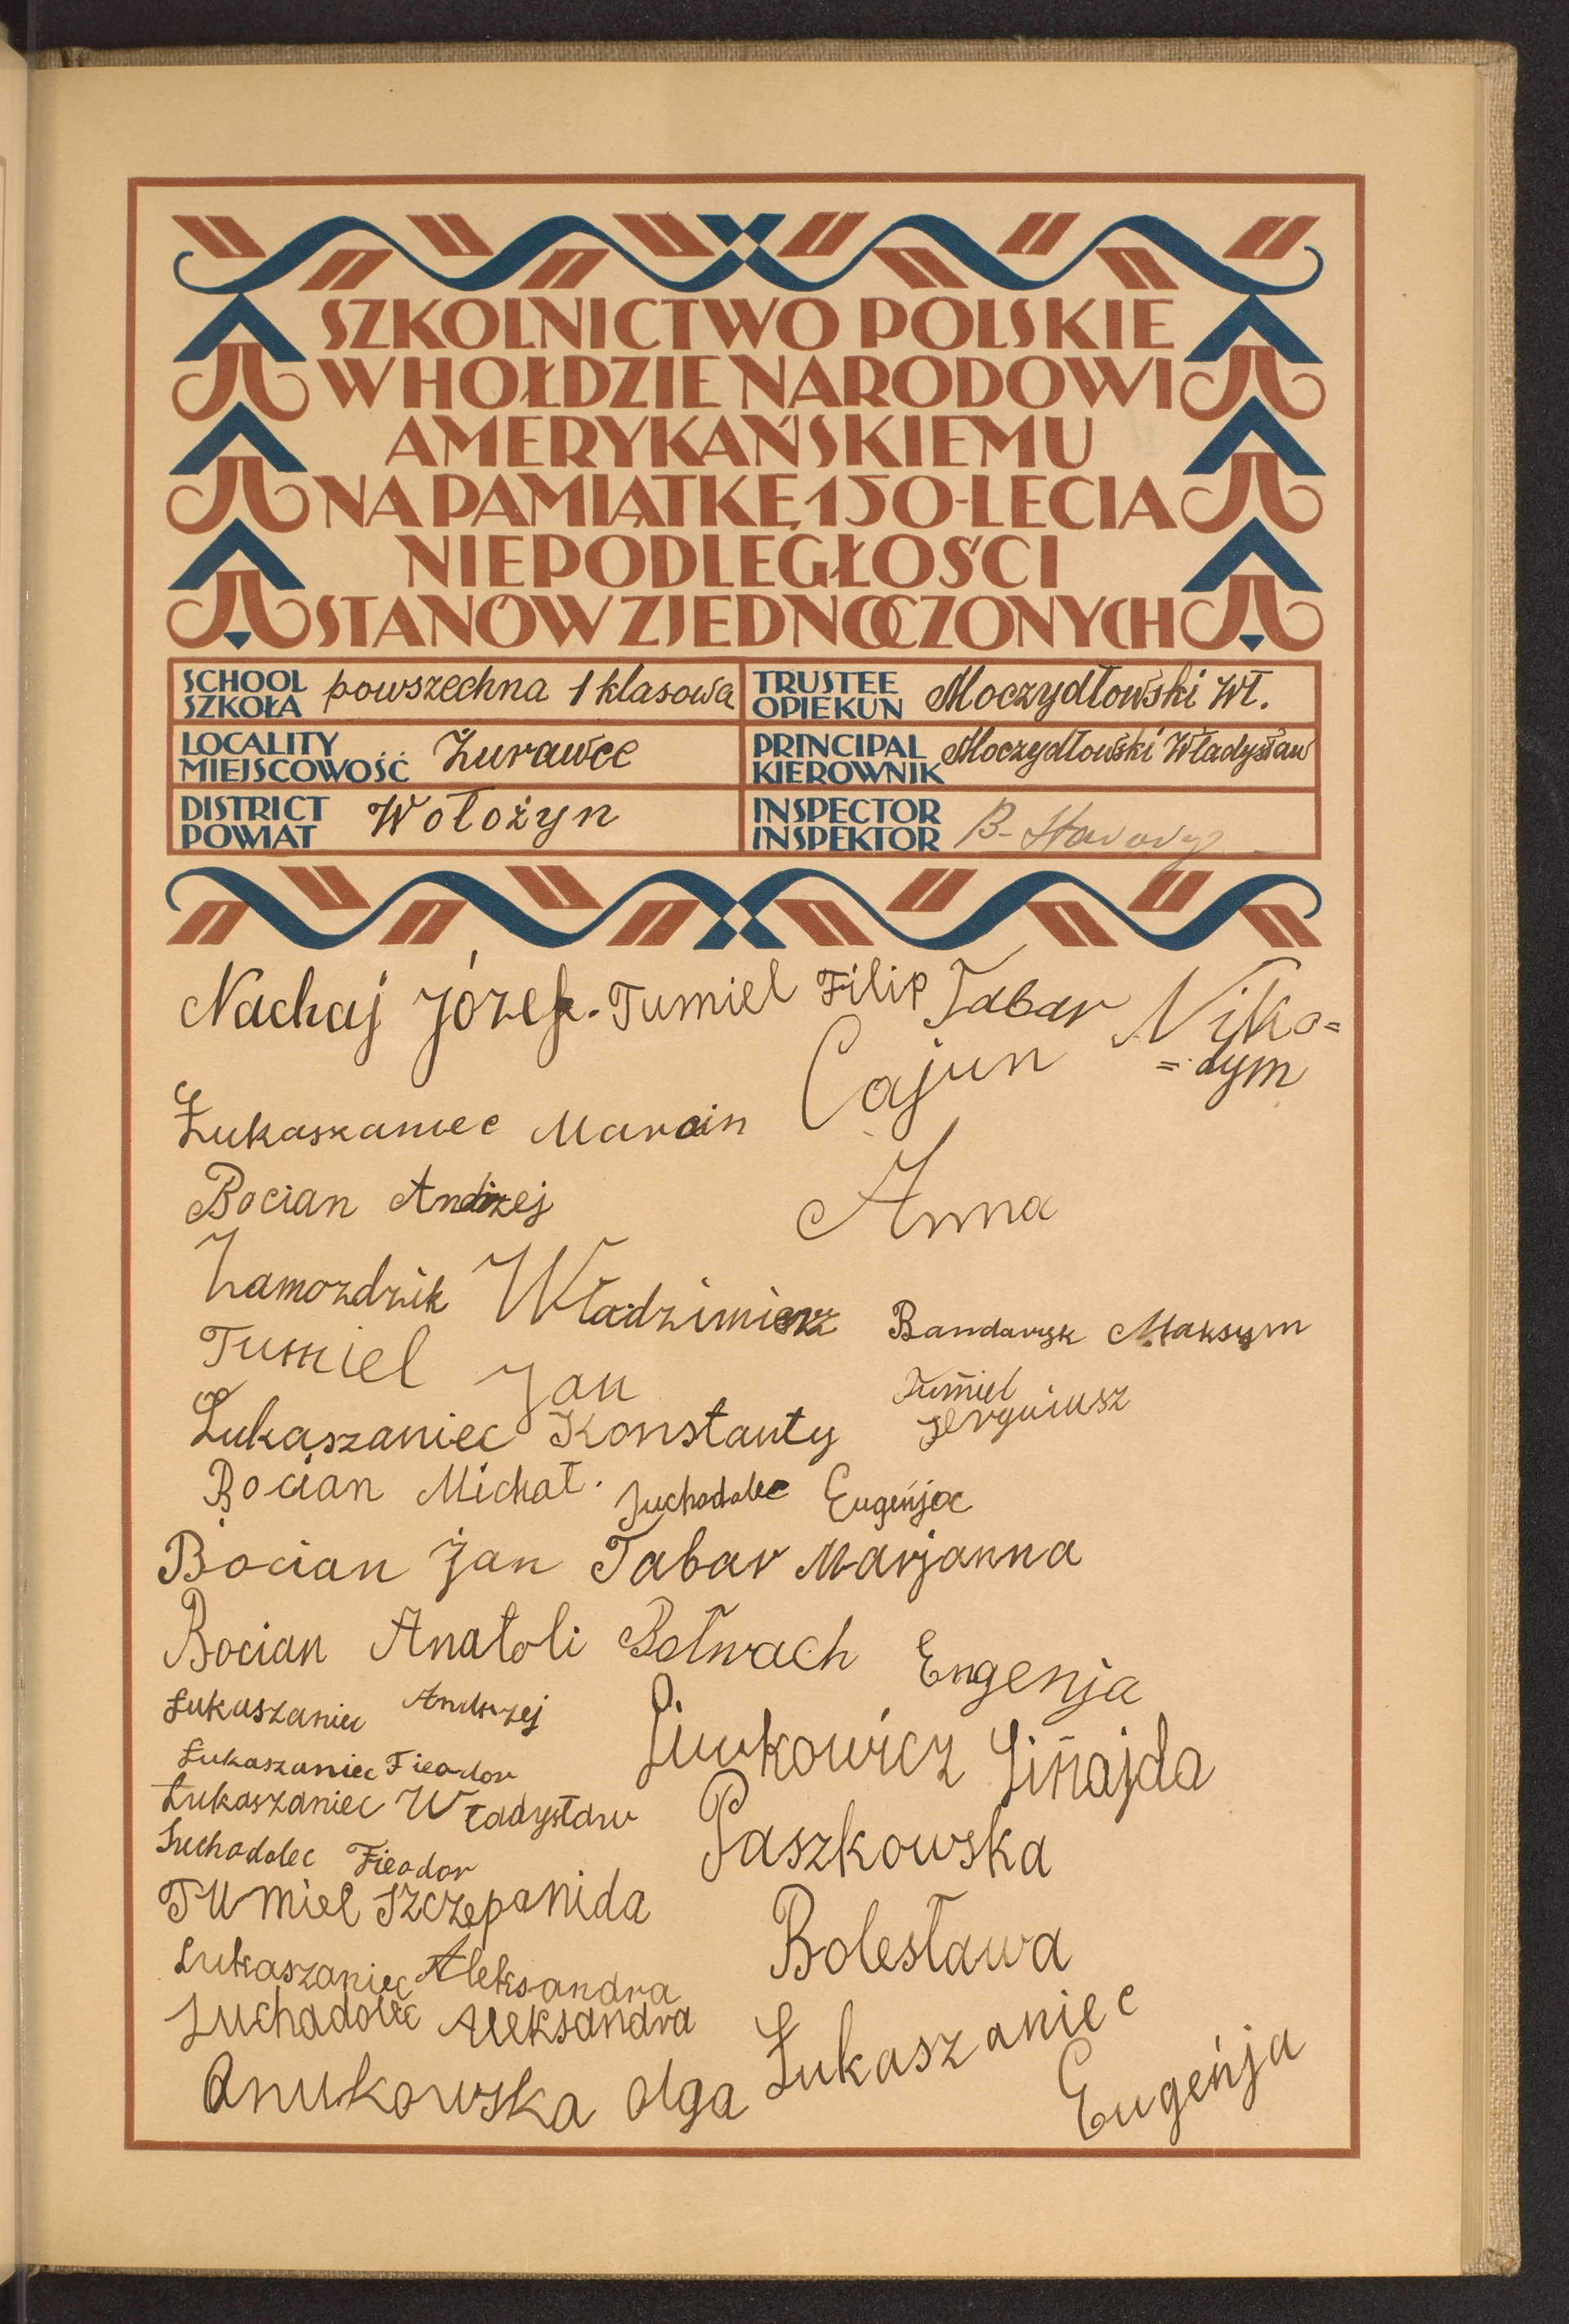 SZKOLNICTWO POLSKIE
W HOŁDZIE NARODOWI
AMERYKAŃSKIEMU
NA PAMIĄTKĘ 150-LECIA
NIEPODLEGŁOŚCI
STANÓW ZJEDNOCZONYCH
SCHOOL
SZKOŁA powszechna 1 klasowa
TRUSTEE
OPIEKUN Moczydłowski Wł.
LOCALITY
MIEJSCOWOŚĆ Żurawce
PRINCIPAL
KIEROWNIK Moczydłowski Władysław
DISTRICT
POWIAT Wołożyn
INSPECTOR
INSPEKTOR B.
Nachaj Józef. Tumiel Filip Tabar Niko=
=dym
Cajun
Anna
Łukaszaniec Marcin
Bocian Andrzej
Zamozdzik Władzimierz
Bandaryk Maksym
Tumiel Jan
Tumiel
Serguiusz
Łukaszaniec Konstanty
Bocian Michał. Suchodolec Eugeńja
Bocian Jan Tabar Marjanna
Bocian Anatoli Bołwach Eugenja
Łukaszaniec Andrzej
Łukaszaniec Fieodor
Łukaszaniec Władysław
Suchodolec Fieodor
Tumiel Szczepanida
Łukaszaniec Aleksandra
Suchadolec Aleksandra
Anukowska Olga
Zinajda
Paszkowska
Bolesława
Łukaszaniec
Eugeńja